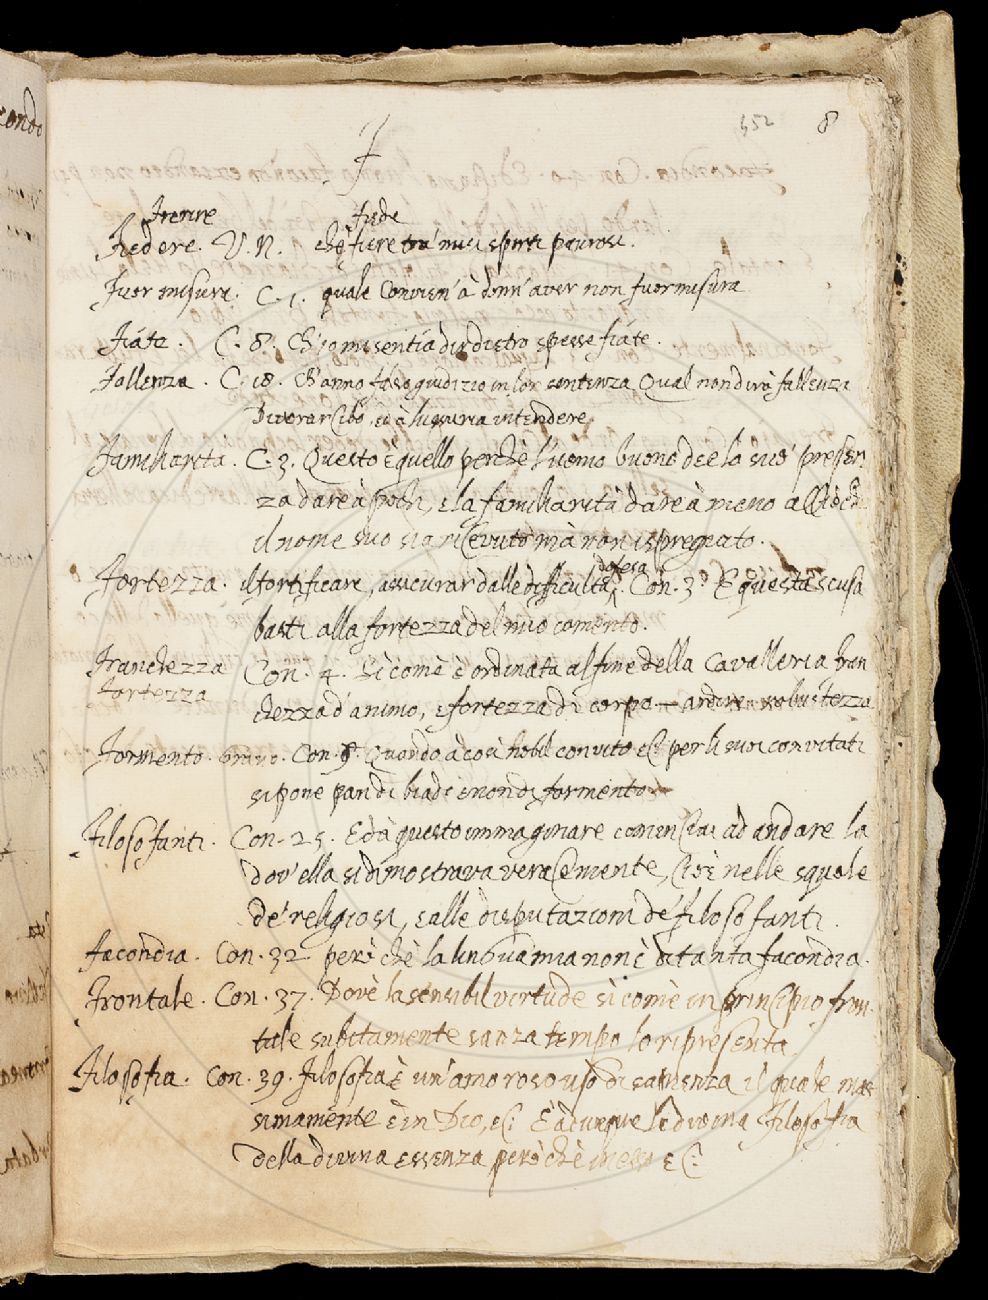 652 8
F
Frenire fiede
Fiedere. V. N. chè fiere trà miei spirti paurosi.
Fuor misura. C. 1. quale convien' à donn' aver non fuor misura
Fiáte. C. 8. Ch'io mi sentía dir dietro spesse fiáte.
Fallenza. C. 18. Ch'anno falso giudizio in lor sentenza Qual non dirà fallenza
Divorar cibo, ed à lussuria intendere
Familiarità. C. 3. Questo è quello perchè l'uomo buono dee la sua presen-
za dare à pochi, e la familiarità dare à meno acciò chè
il nome suo sia ricevuto mà non ispregiato.
Fortezza. il fortificare, assicurar dalle difficultà, difesa. Con. 3. E questa scusa
basti alla fortezza del mio comento.
Franchezza Con. 4. Sì com' è ordinata al fine della Cavalleria fran
Fortezza chezza d'animo, e fortezza di corpo — ardire robustezza
Formento. grano. Con. 8. Quando à così nobil convito &c. per li suoi convitati
si pone pan di biade e non di formento
Filosofanti. Con. 25. Ed à questo immaginare cominciai ad andare la
dov' ella si dimostrava veracemente, cioè nelle squole
de' religiosi, e alle disputazioni de' filosofanti.
Facondia. Con. 32 però chè la lingua mia non è di tanta facondia.
Frontale. Con. 37. Dov' è la sensibil virtude sì com' è in principio fron-
tale subitamente sanza tempo lo ripresenta.
Filosofia. Con. 39. Filosofia è un' amoroso uso di sapienza il quale mas
simamente è in Dio, &c. E' adunque la divina Filosofia
della divina essenza però chè in esso &c.